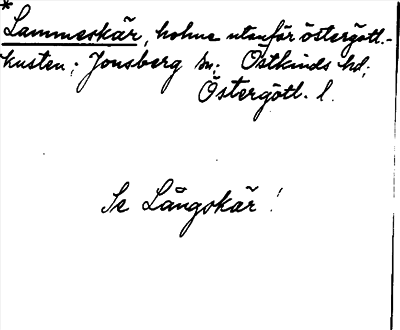 *Lammeskär, holme utanför östergötl.-
kusten; Jonsberg sn; Östkinds hd;
Östergötl. l.
Se Långskär!